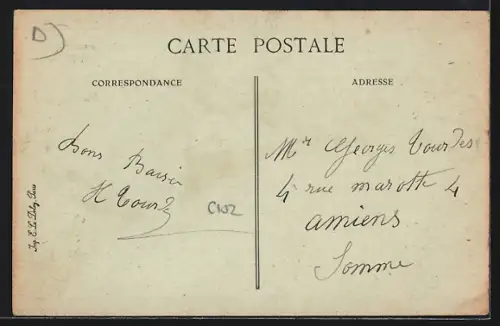 D
CARTE POSTALE
CORRESPONDANCE
Bons Baisers
H Tourd
C102
Imp. E. Le Deley, Paris
ADRESSE
Mr Georges Tourdes
4 rue marotte 4
amiens
Somme